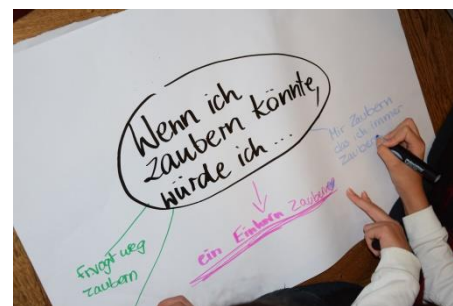 Wenn ich
zaubern könnte,
würde ich ....
Mir Zaubern
das ich immer
Zaubern
ein Einhorn Zaubern
weg
zaubern